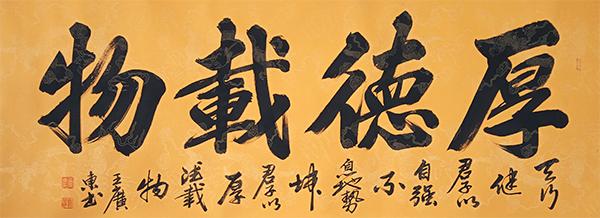 厚德載物
天行
健
君子以
自强
不
息地勢
坤
君子以
厚
德載
物
王廣
東书